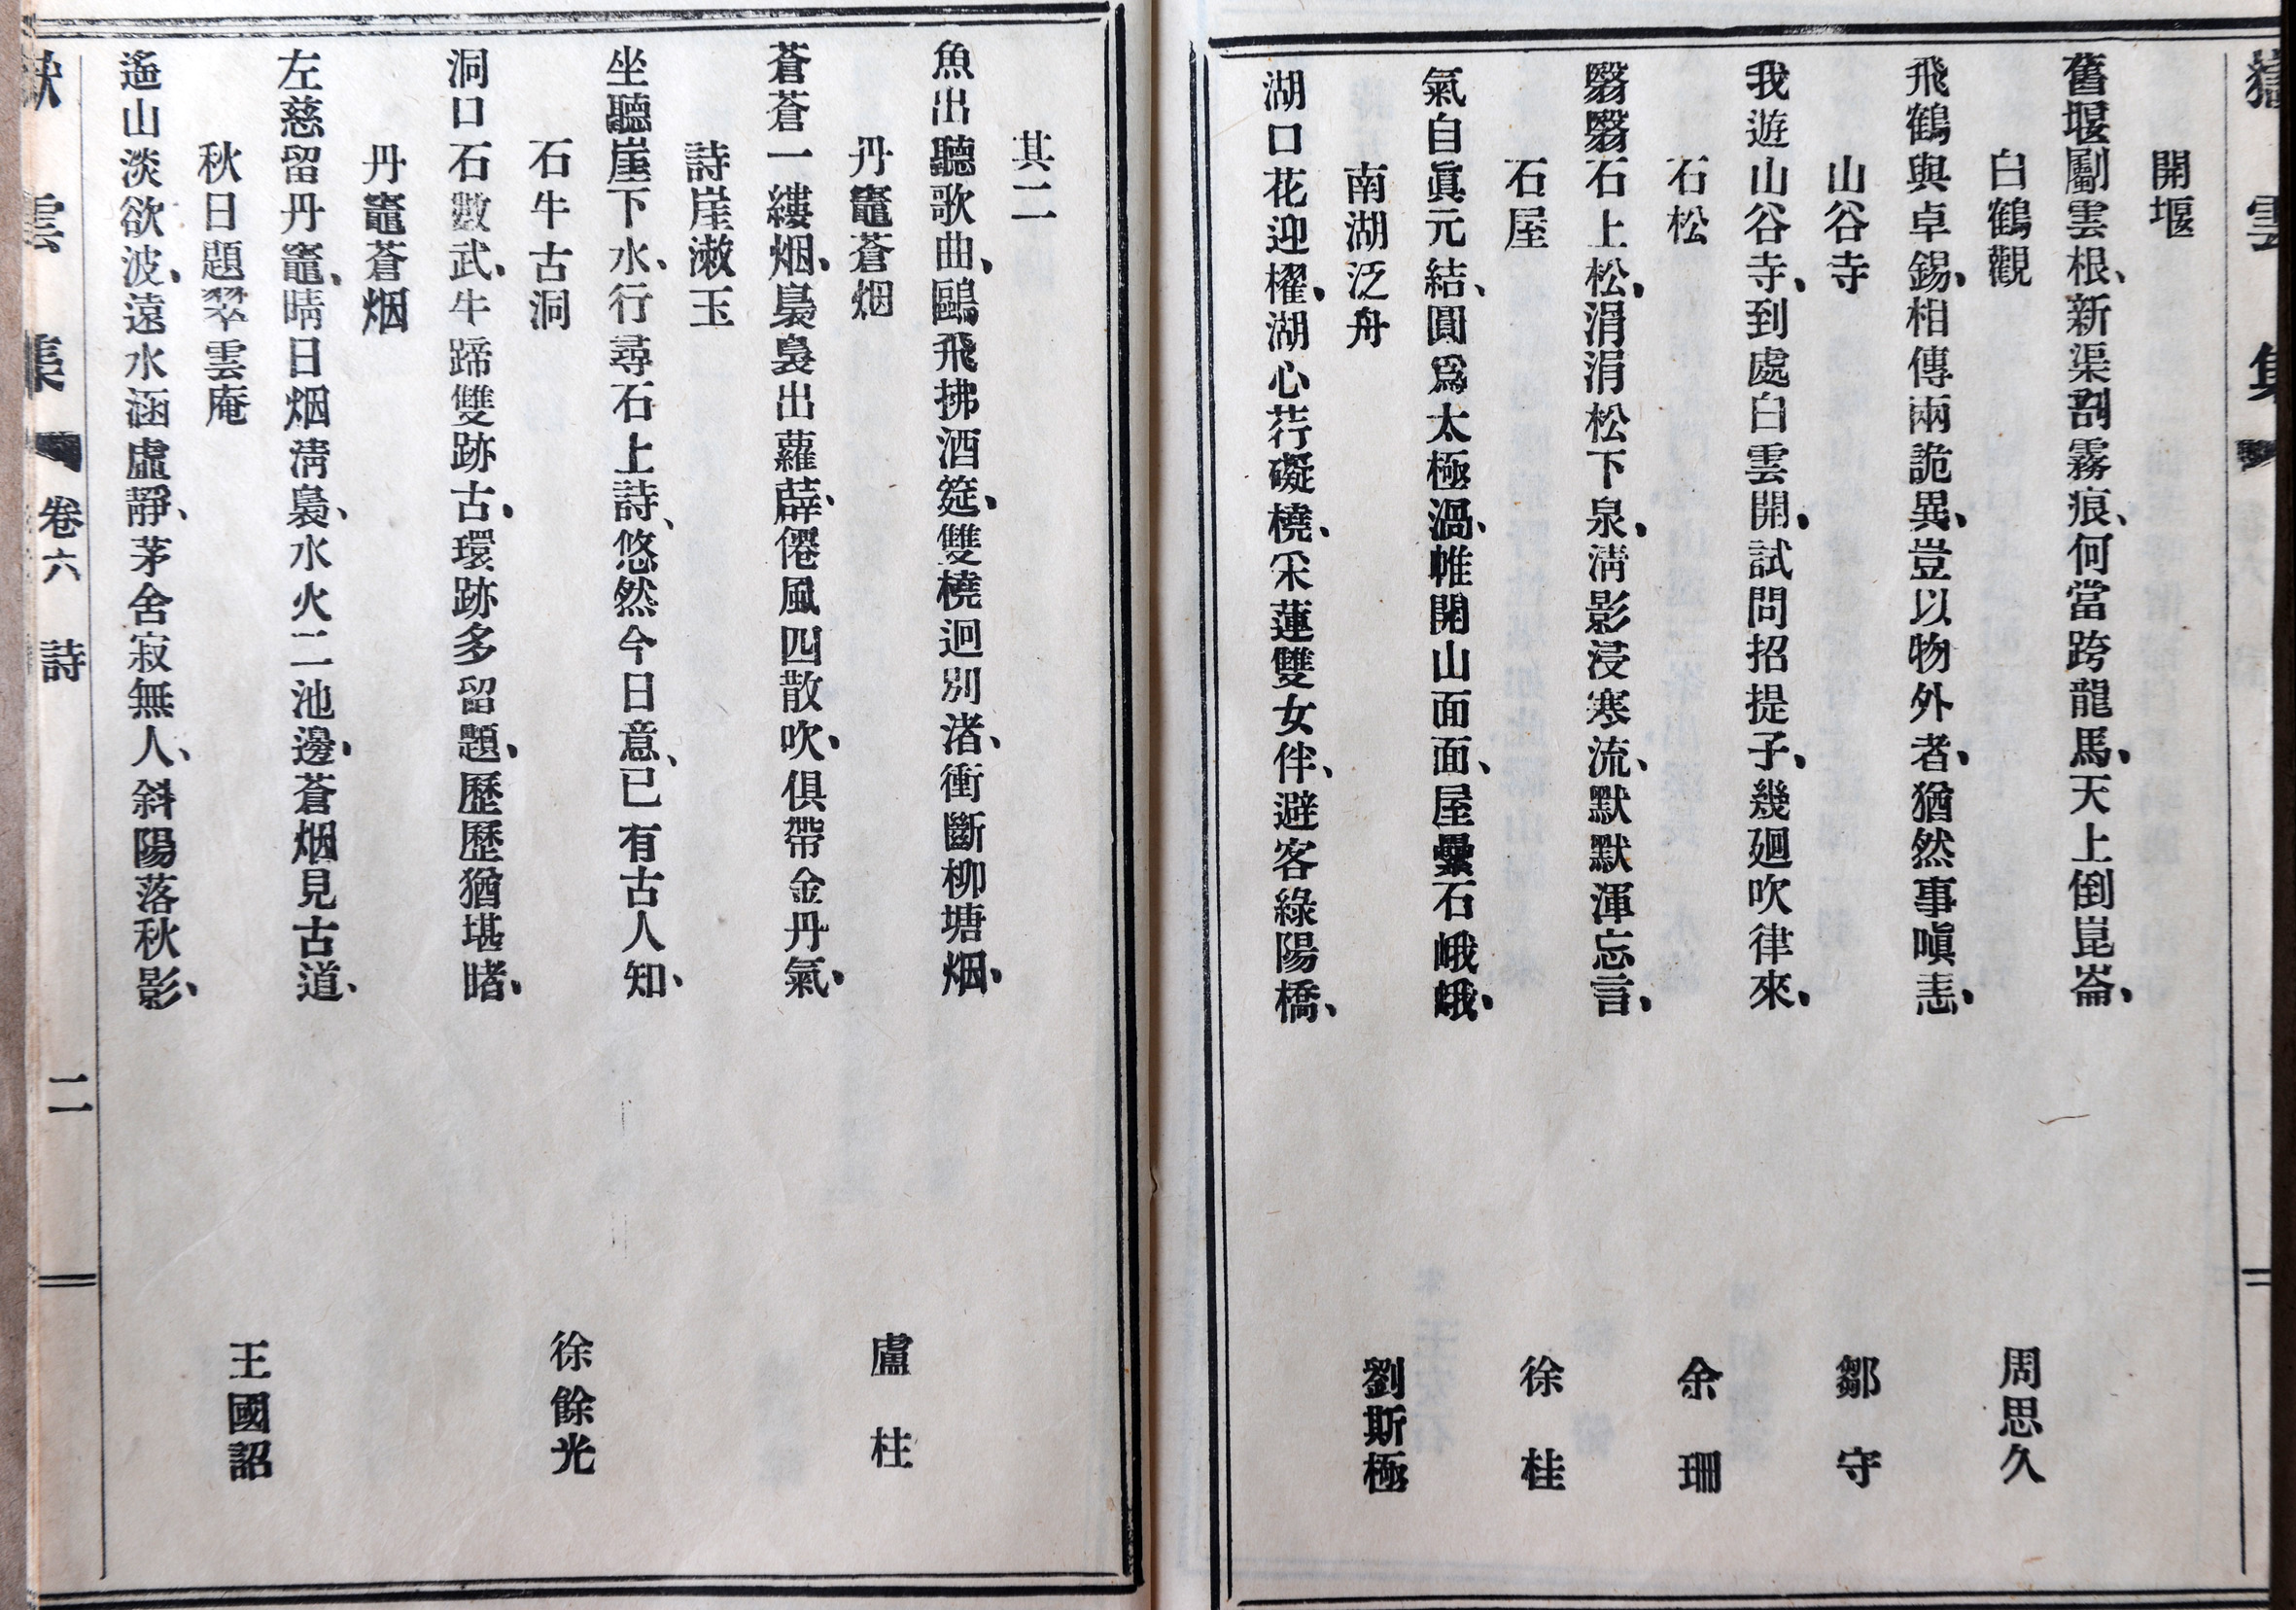 嶽雲集
開堰
舊堰劚雲根、新渠剖霧痕、何當跨龍馬、天上倒崑崙、
白鶴觀 周思久
飛鶴與卓錫、相傳兩詭異、豈以物外者、猶然事嗔恚、
山谷寺 鄒守
我遊山谷寺、到處白雲開、試問招提子、幾廻吹律來、
石松 余珊
翳翳石上松、涓涓松下泉、淸影浸寒流、默默渾忘言、
石屋 徐桂
氣自眞元結、圓爲太極渦、帷開山面面、屋疊石峨峨、
南湖泛舟 劉斯極
湖口花迎櫂、湖心荇礙橈、采蓮雙女伴、避客綠陽橋、
其二
魚出聽歌曲、鷗飛拂酒筵、雙橈迴別渚、衝斷柳塘烟、
丹竈蒼烟 盧柱
蒼蒼一縷烟、裊裊出蘿薜、僊風四散吹、俱帶金丹氣、
詩崖漱玉
坐聽崖下水、行尋石上詩、悠然今日意、已有古人知、
石牛古洞 徐餘光
洞口石數武、牛蹄雙跡古、環跡多留題、歷歷猶堪睹、
丹竈蒼烟
左慈留丹竈、晴日烟淸裊、水火二池邊、蒼烟見古道、
秋日題翠雲庵 王國詔
遙山淡欲波、遠水涵虛靜、茅舍寂無人、斜陽落秋影、
嶽雲集 卷六 詩 二